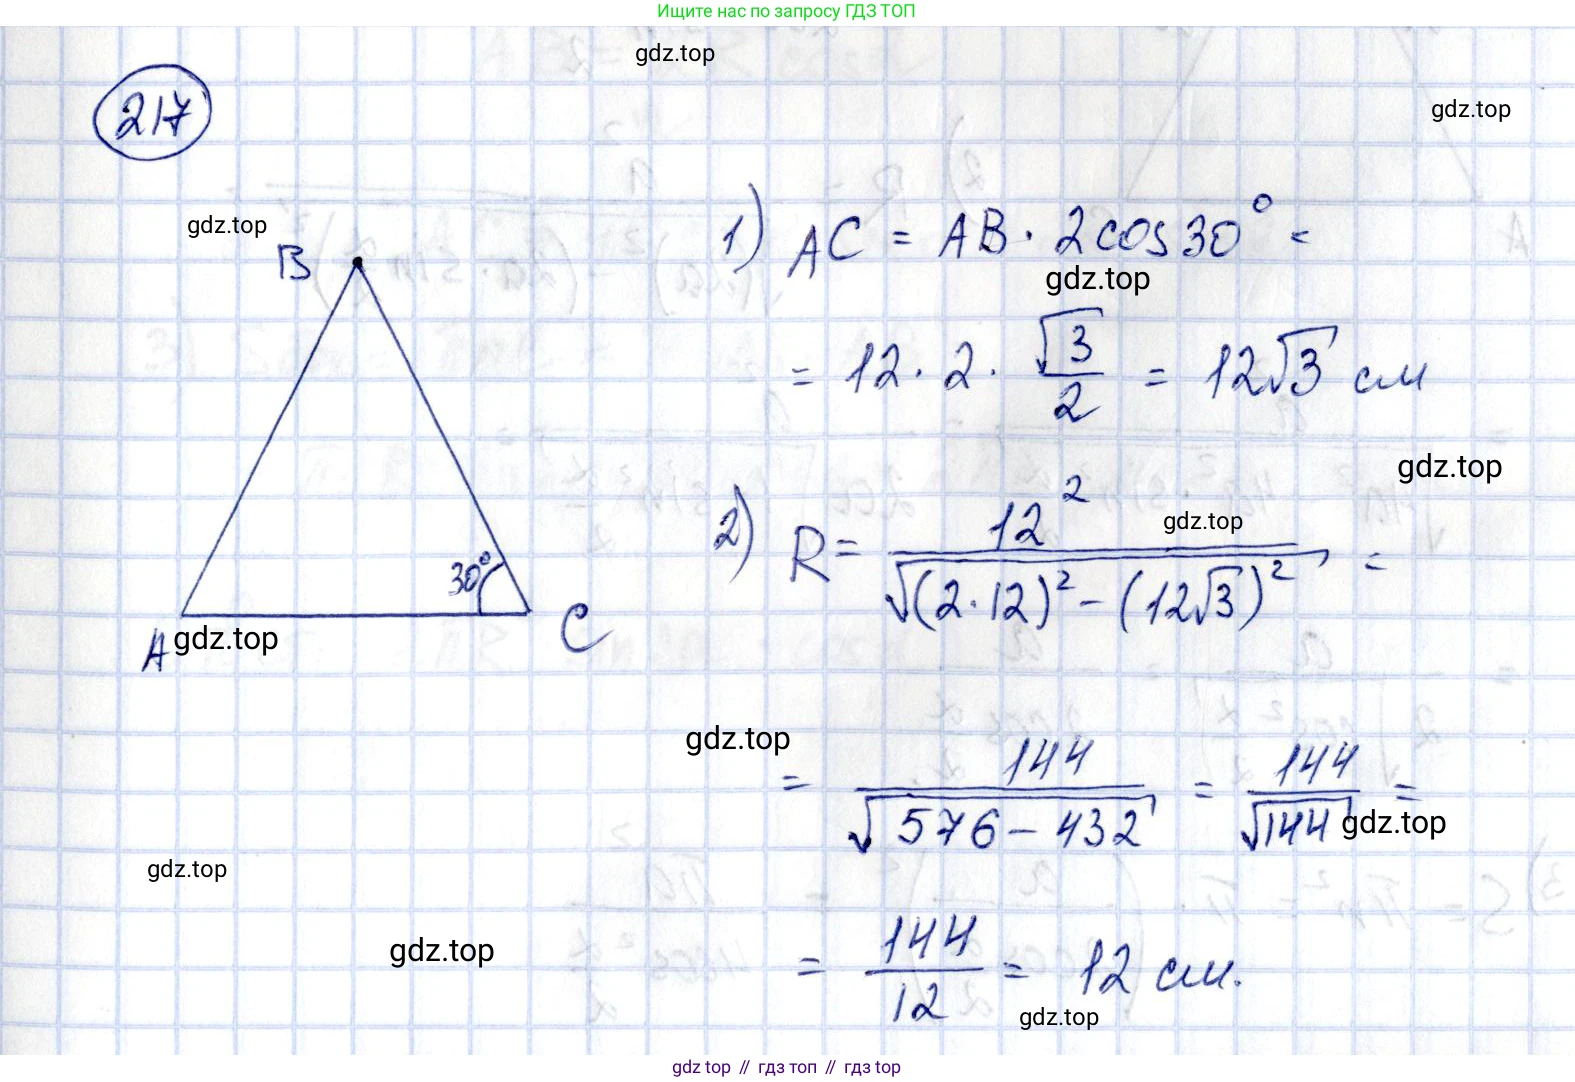 Ищите нас по запросу ГДЗ ТОП
gdz.top
217
gdz.top
gdz.top
B
1) AC = AB · 2cos30° =
gdz.top
= 12 · 2 · √3/2 = 12√3 см
gdz.top
2) R = 12²/√((2·12)² − (12√3)²) =
gdz.top
30°
A
C
gdz.top
gdz.top
= 144/√(576 − 432) = 144/√144 =
gdz.top
gdz.top
gdz.top
= 144/12 = 12 см.
gdz.top
gdz top // гдз топ // гдз top